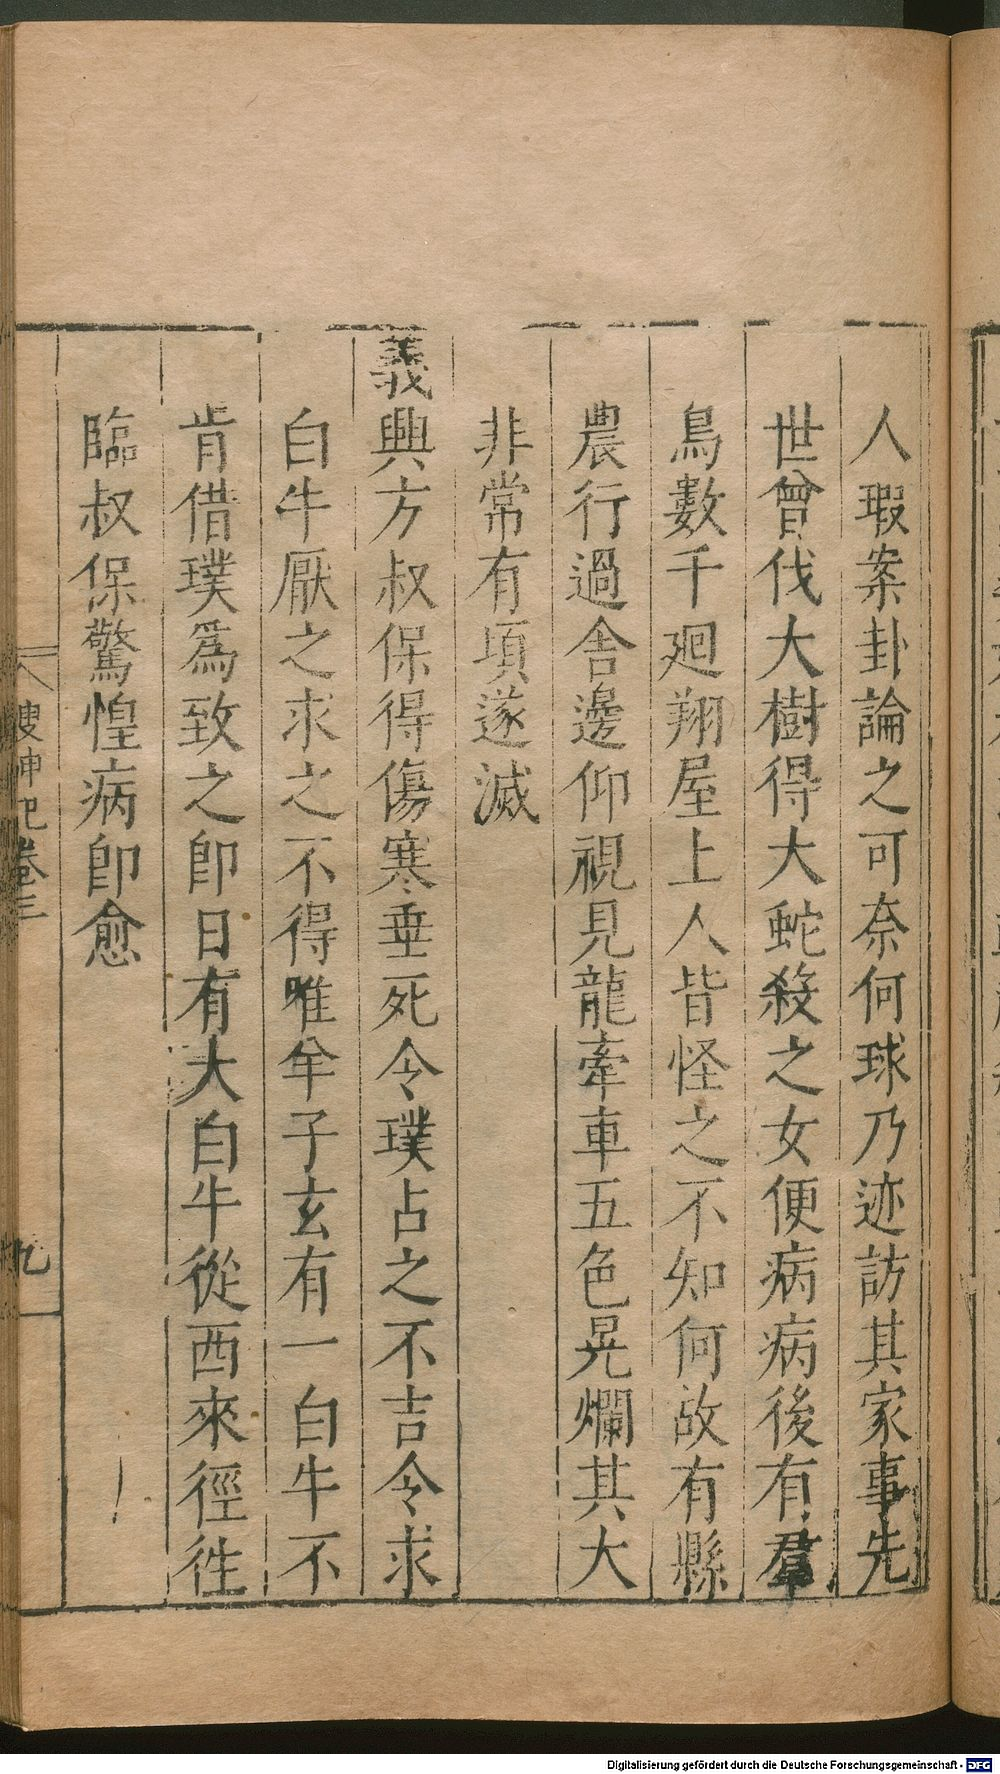 人瑕案卦論之可奈何球乃迹訪其家事先
世曾伐大樹得大蛇殺之女便病病後有羣
鳥數千廻翔屋上人皆怪之不知何故有縣
農行過舍邊仰視見龍牽車五色晃爛其大
非常有頃遂滅
義興方叔保得傷寒垂死令璞占之不吉令求
白牛厭之求之不得唯羊子玄有一白牛不
肯借璞爲致之卽日有大白牛從西來徑往
臨叔保驚惶病卽愈
搜神記卷三
九
Digitalisierung gefördert durch die Deutsche Forschungsgemeinschaft - DFG